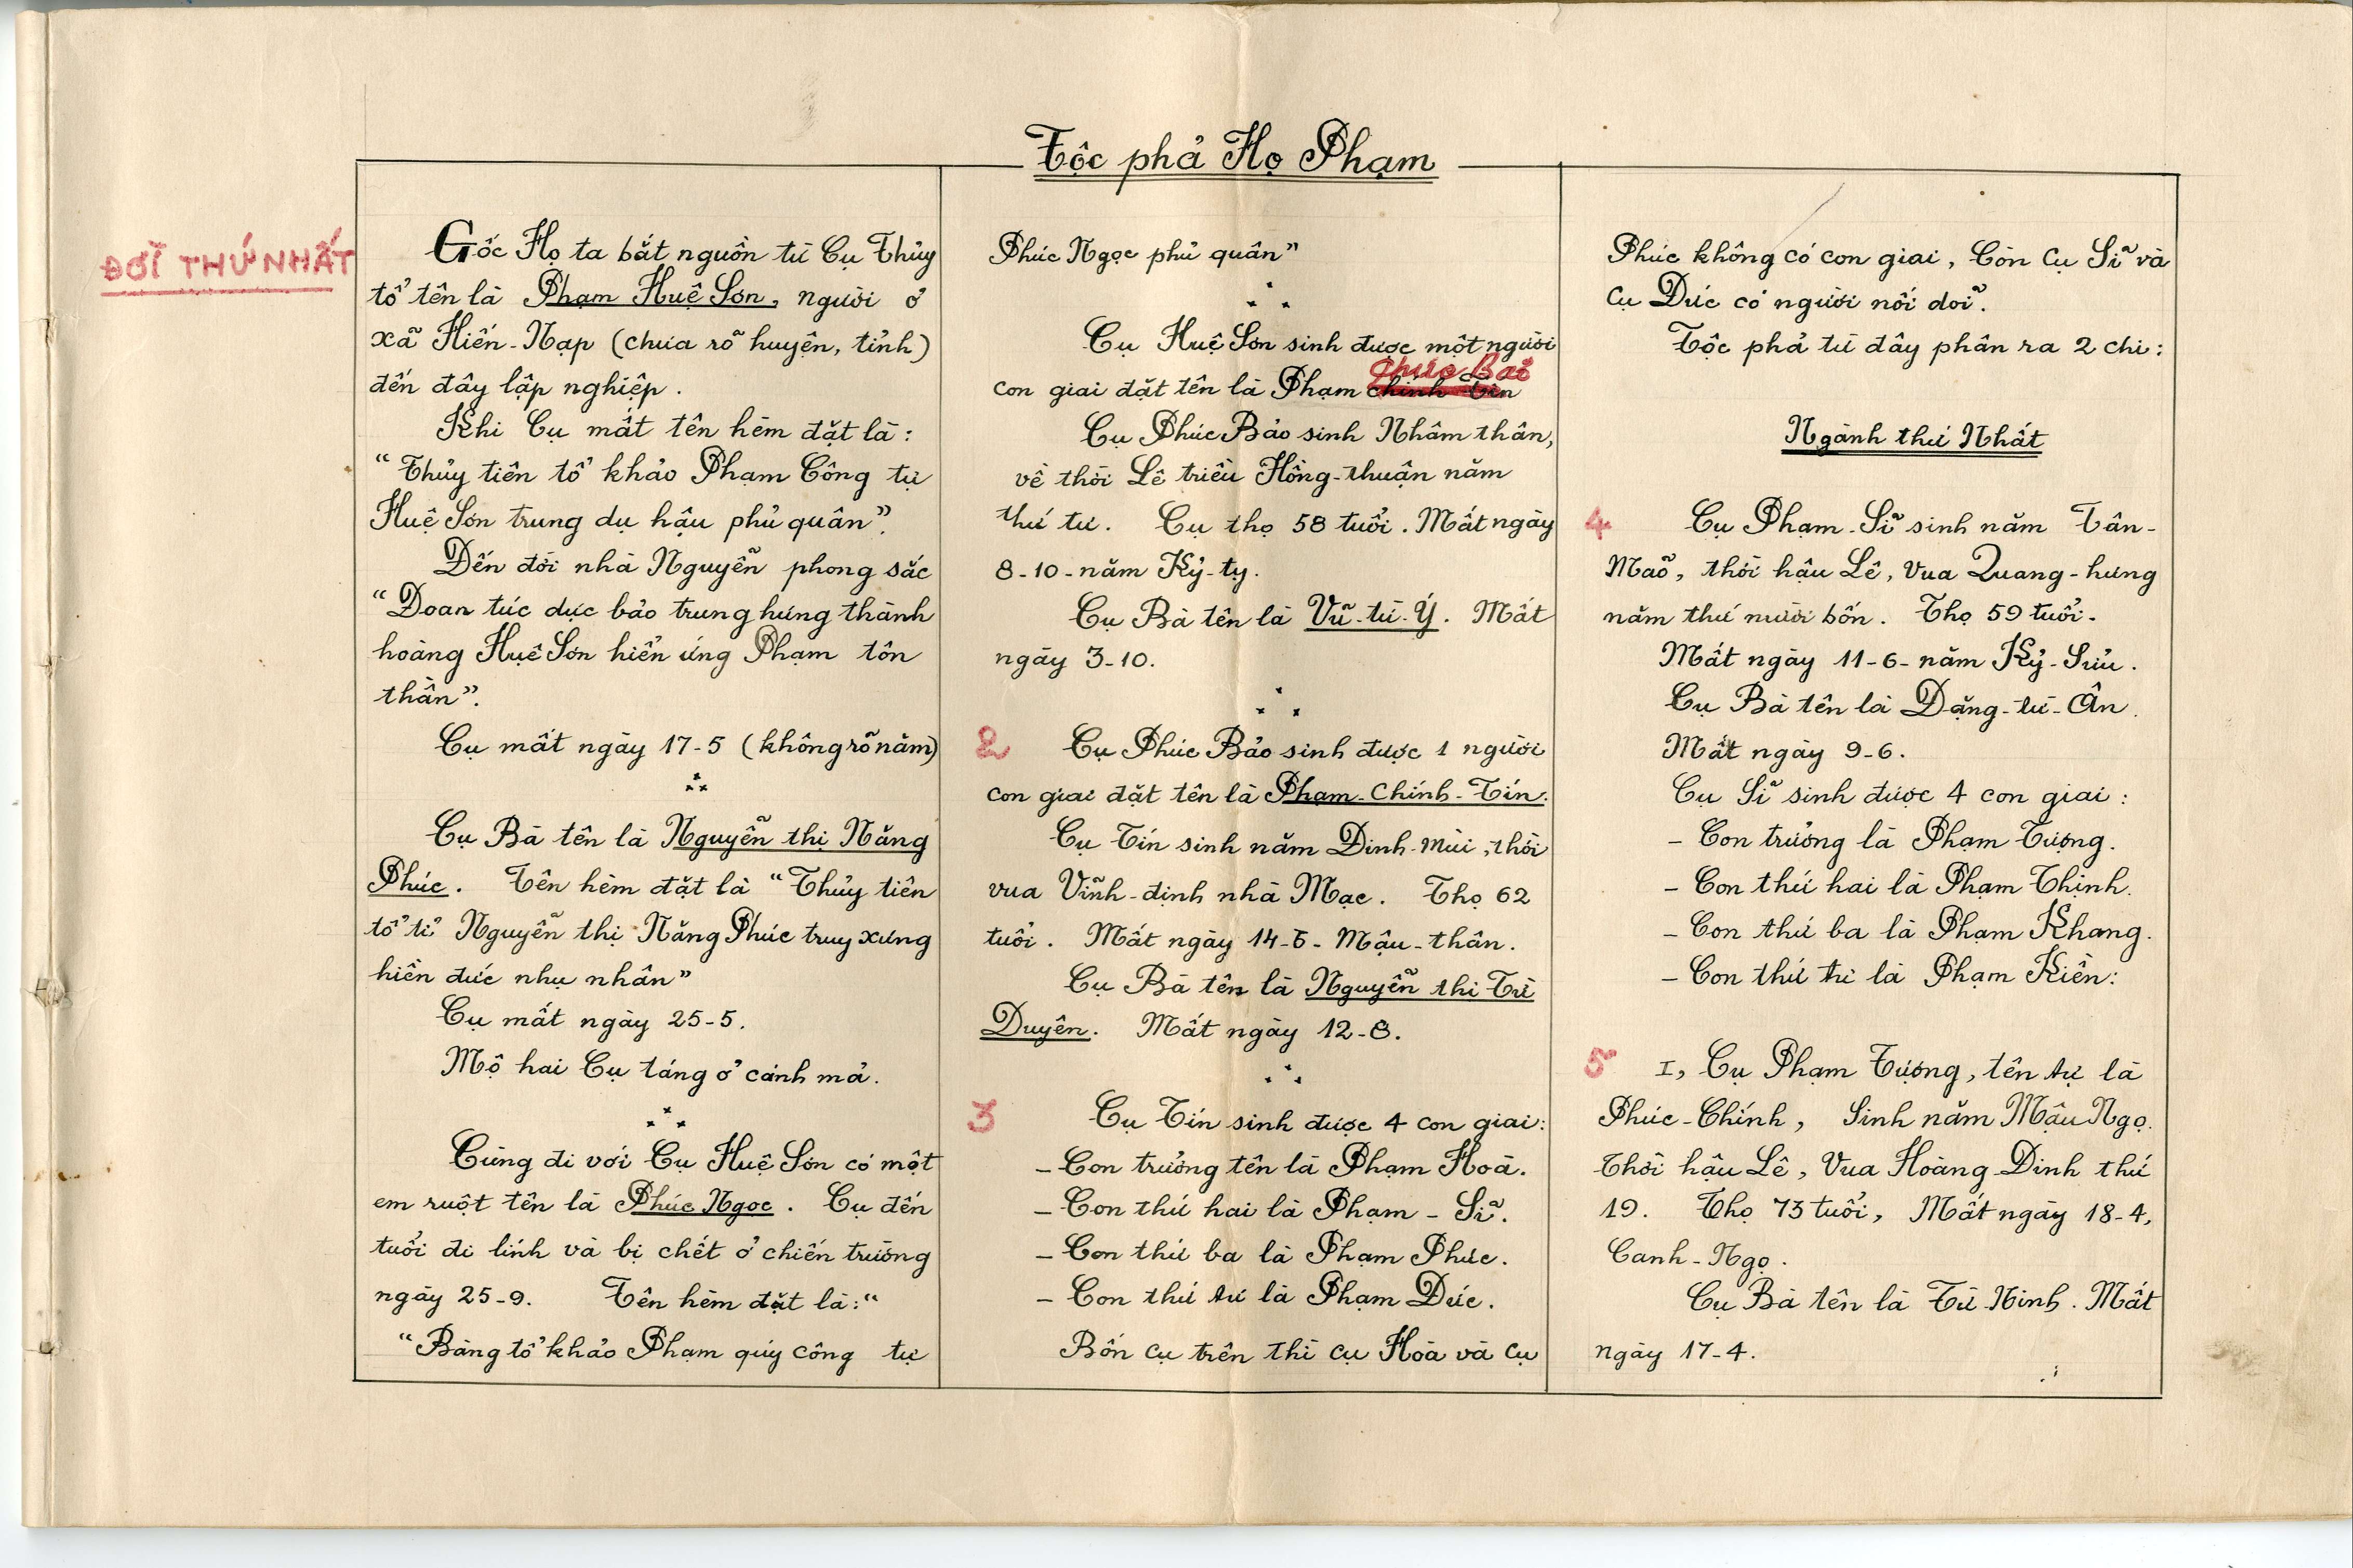 Tộc phả Họ Phạm
ĐỜI THỨ NHẤT
Gốc Họ ta bắt nguồn từ Cụ Thủy
tổ tên là Phạm Huệ Sơn, người ở
xã Hiến-Nạp (chưa rõ huyện, tỉnh)
đến đây lập nghiệp.
Khi Cụ mất tên hèm đặt là:
"Thủy tiên tổ khảo Phạm Công tự
Huệ Sơn trung dụ hậu phủ quân".
Đến đời nhà Nguyễn phong sắc
"Đoan túc dực bảo trung hưng thành
hoàng Huệ Sơn hiển ứng Phạm tôn
thần".
Cụ mất ngày 17-5 (không rõ năm)
Cụ Bà tên là Nguyễn thị Năng
Phúc. Tên hèm đặt là "Thủy tiên
tổ tỉ Nguyễn thị Năng Phúc truy xưng
hiền đức nhụ nhân"
Cụ mất ngày 25-5.
Mộ hai Cụ táng ở cánh mả.
Cùng đi với Cụ Huệ Sơn có một
em ruột tên là Phúc Ngọc. Cụ đến
tuổi đi lính và bị chết ở chiến trường
ngày 25-9. Tên hèm đặt là:"
"Bàng tổ khảo Phạm quý công tự
Phúc Ngọc phủ quân"
Cụ Huệ Sơn sinh được một người
Phúc Bảo
con giai đặt tên là Phạm chính Tín
Cụ Phúc Bảo sinh Nhâm thân,
về thời Lê triều Hồng-thuận năm
thứ tư. Cụ thọ 58 tuổi. Mất ngày
8-10-năm Kỷ-tỵ.
Cụ Bà tên là Vũ-từ-Ý. Mất
ngày 3-10.
2 Cụ Phúc Bảo sinh được 1 người
con giai đặt tên là Phạm-Chính-Tín.
Cụ Tín sinh năm Đinh-mùi, thời
vua Vĩnh-định nhà Mạc. Thọ 62
tuổi. Mất ngày 14-6-Mậu-thân.
Cụ Bà tên là Nguyễn thị Từ
Duyên. Mất ngày 12-8.
3 Cụ Tín sinh được 4 con giai:
- Con trưởng tên là Phạm Hoà.
- Con thứ hai là Phạm - Sĩ.
- Con thứ ba là Phạm Phúc.
- Con thứ tư là Phạm Đức.
Bốn cụ trên thì cụ Hoà và cụ
Phúc không có con giai, Còn cụ Sĩ và
cụ Đức có người nối dõi.
Tộc phả từ đây phân ra 2 chi:
Ngành thứ Nhất
4 Cụ Phạm-Sĩ sinh năm Tân-
Mão, thời hậu Lê, Vua Quang-hưng
năm thứ mười bốn. Thọ 59 tuổi.
Mất ngày 11-6-năm Kỷ-Sửu.
Cụ Bà tên là Đặng-từ-Ân.
Mất ngày 9-6.
Cụ Sĩ sinh được 4 con giai:
- Con trưởng là Phạm Tượng.
- Con thứ hai là Phạm Thịnh.
- Con thứ ba là Phạm Khang.
- Con thứ tư là Phạm Kiền:
5 I, Cụ Phạm Tượng, tên tự là
Phúc-Chính, Sinh năm Mậu Ngọ.
Thời hậu Lê, Vua Hoàng Định thứ
19. Thọ 73 tuổi, Mất ngày 18-4,
Canh-Ngọ.
Cụ Bà tên là Từ-Ninh. Mất
ngày 17-4.